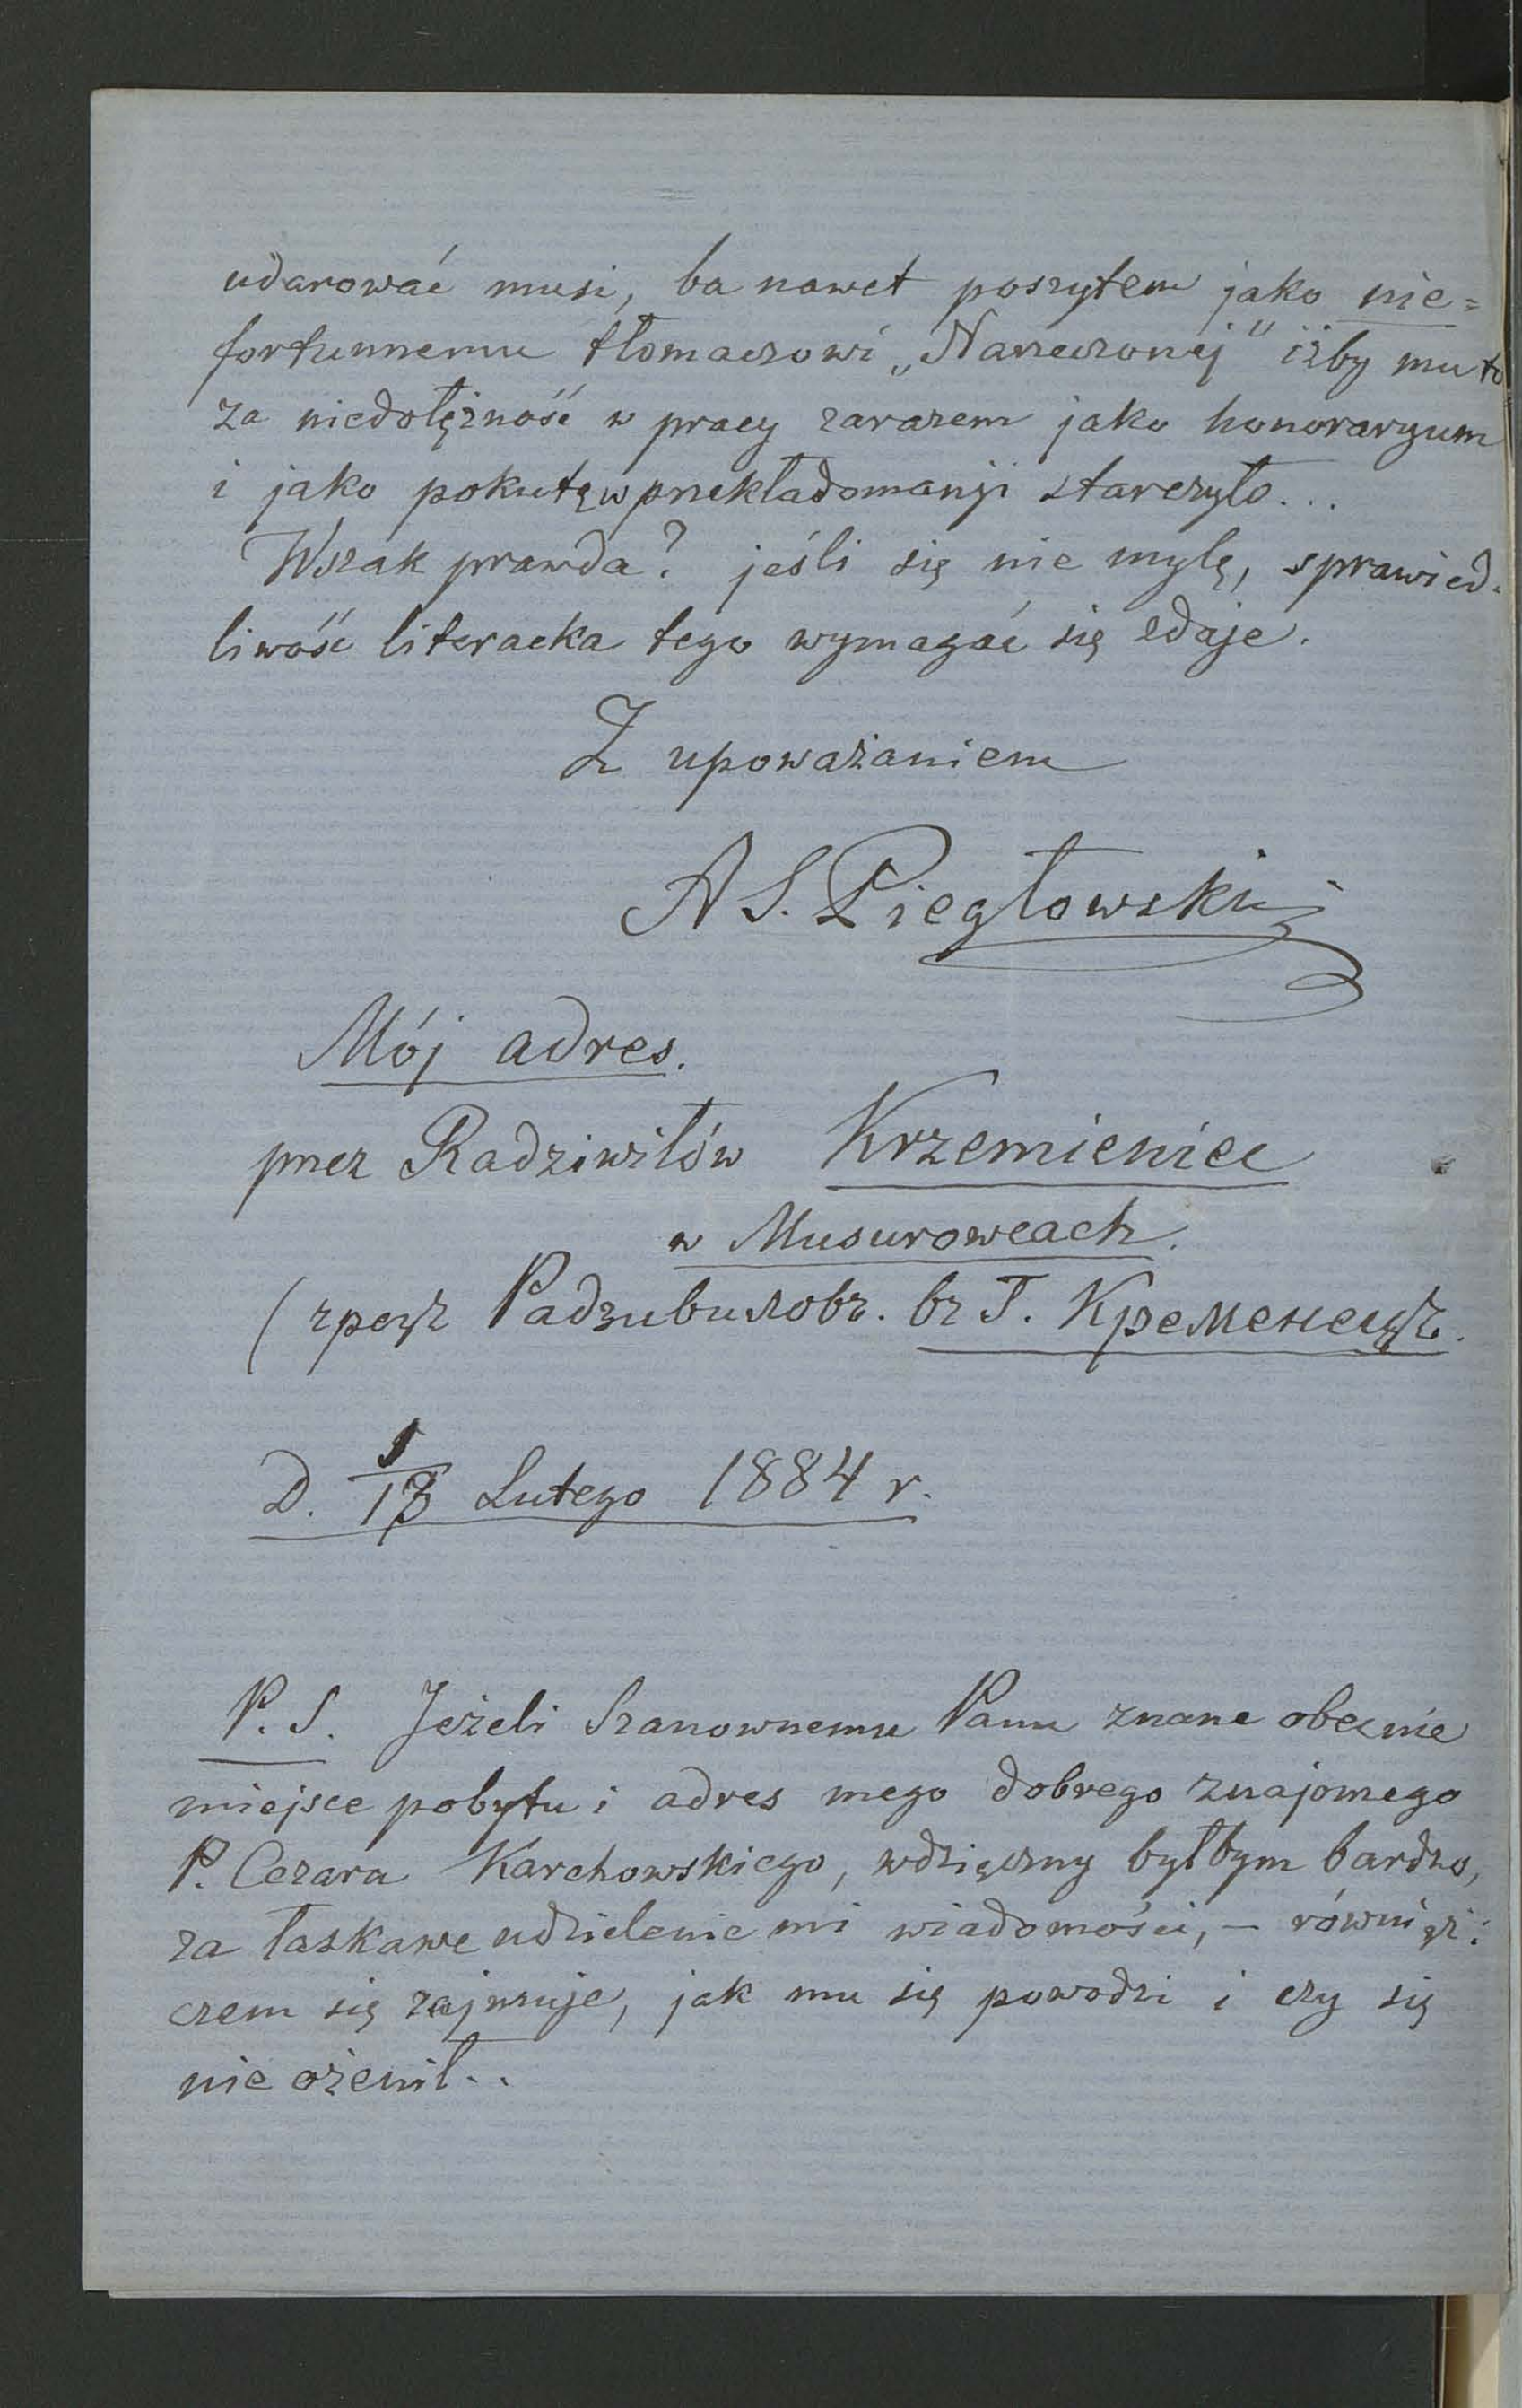 udarować musi, ba nawet poszytem jako nie=
fortunnemu tłomaczowi „Narzeczonéj” iżby mu to
za niedołężność w pracy zarazem jako honoraryum
i jako pokutę w przekładomanji starczyło...
Wszak prawda? jeśli się nie mylę, sprawied-
liwość literacka tego wymagać się zdaje.
Z upoważaniem
A S. Piegłowski
Mój adres.
przez Radziwiłów Krzemieniec
w Musurowcach.
(чрезъ Радзивиловъ. въ Г. Кременецъ.
D. 1/13 Lutego 1884 r.
P. S. Jeżeli Szanownemu Panu znane obecnie
miejsce pobytu i adres mego dobrego znajomego
P. Cezara Karchowskiego, wdzięczny byłbym bardzo,
za łaskawe udzielenie mi wiadomości, – również:
czem się zajmuje, jak mu się powodzi i czy się
nie ożenił..